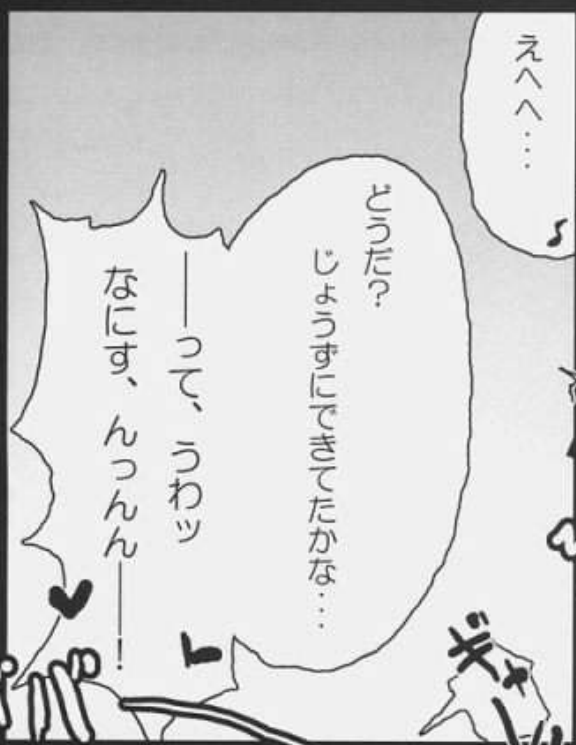 えへへ…
どうだ？
じょうずにできてたかな…
――って、うわッ
なにす、んっんん――！